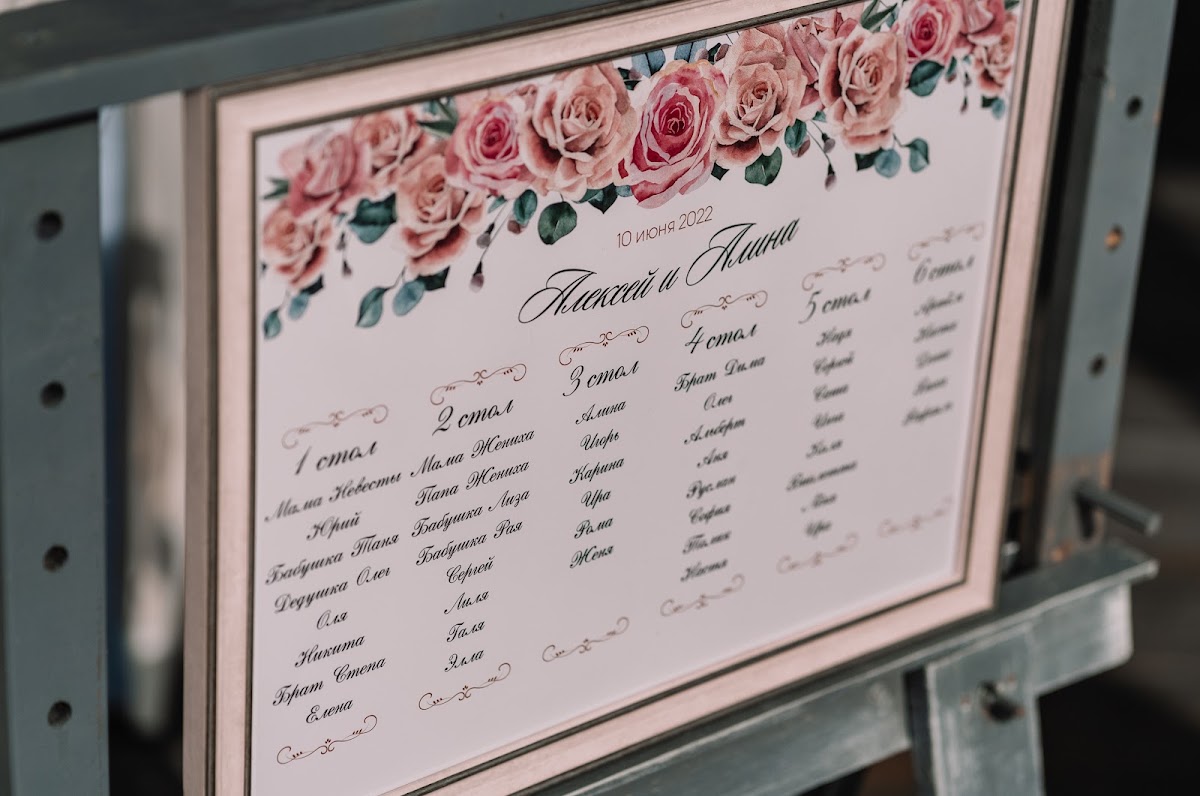 10 июня 2022
Алексей и Алина
1 стол
Мама Невесты
Юрий
Бабушка Таня
Дедушка Олег
Оля
Никита
Брат Степа
Елена
2 стол
Мама Жениха
Папа Жениха
Бабушка Лиза
Бабушка Рая
Сергей
Лиля
Галя
Элла
3 стол
Алина
Игорь
Карина
Ира
Рома
Женя
4 стол
Брат Дима
Олег
Альберт
Аня
Руслан
София
Настя
5 стол
Надя
Сергей
Коля
Ира
6 стол